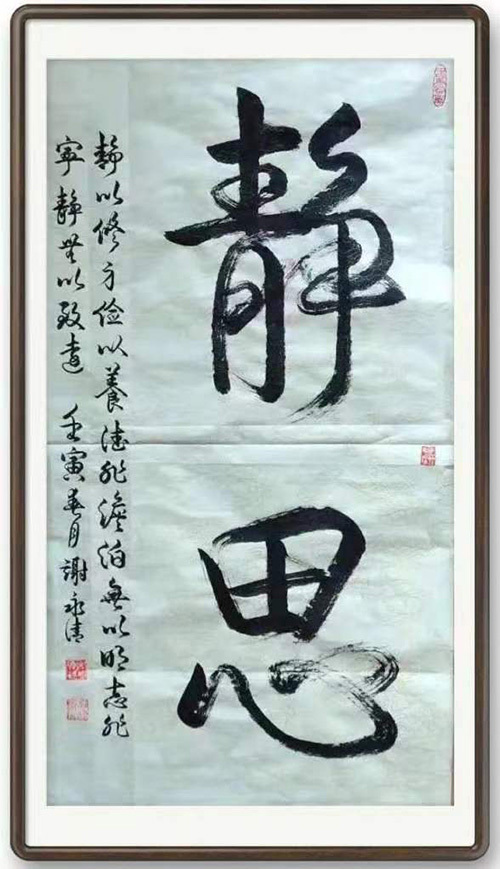 静思
静以修身俭以養德非澹泊無以明志非
寧静無以致遠 壬寅春月謝永清